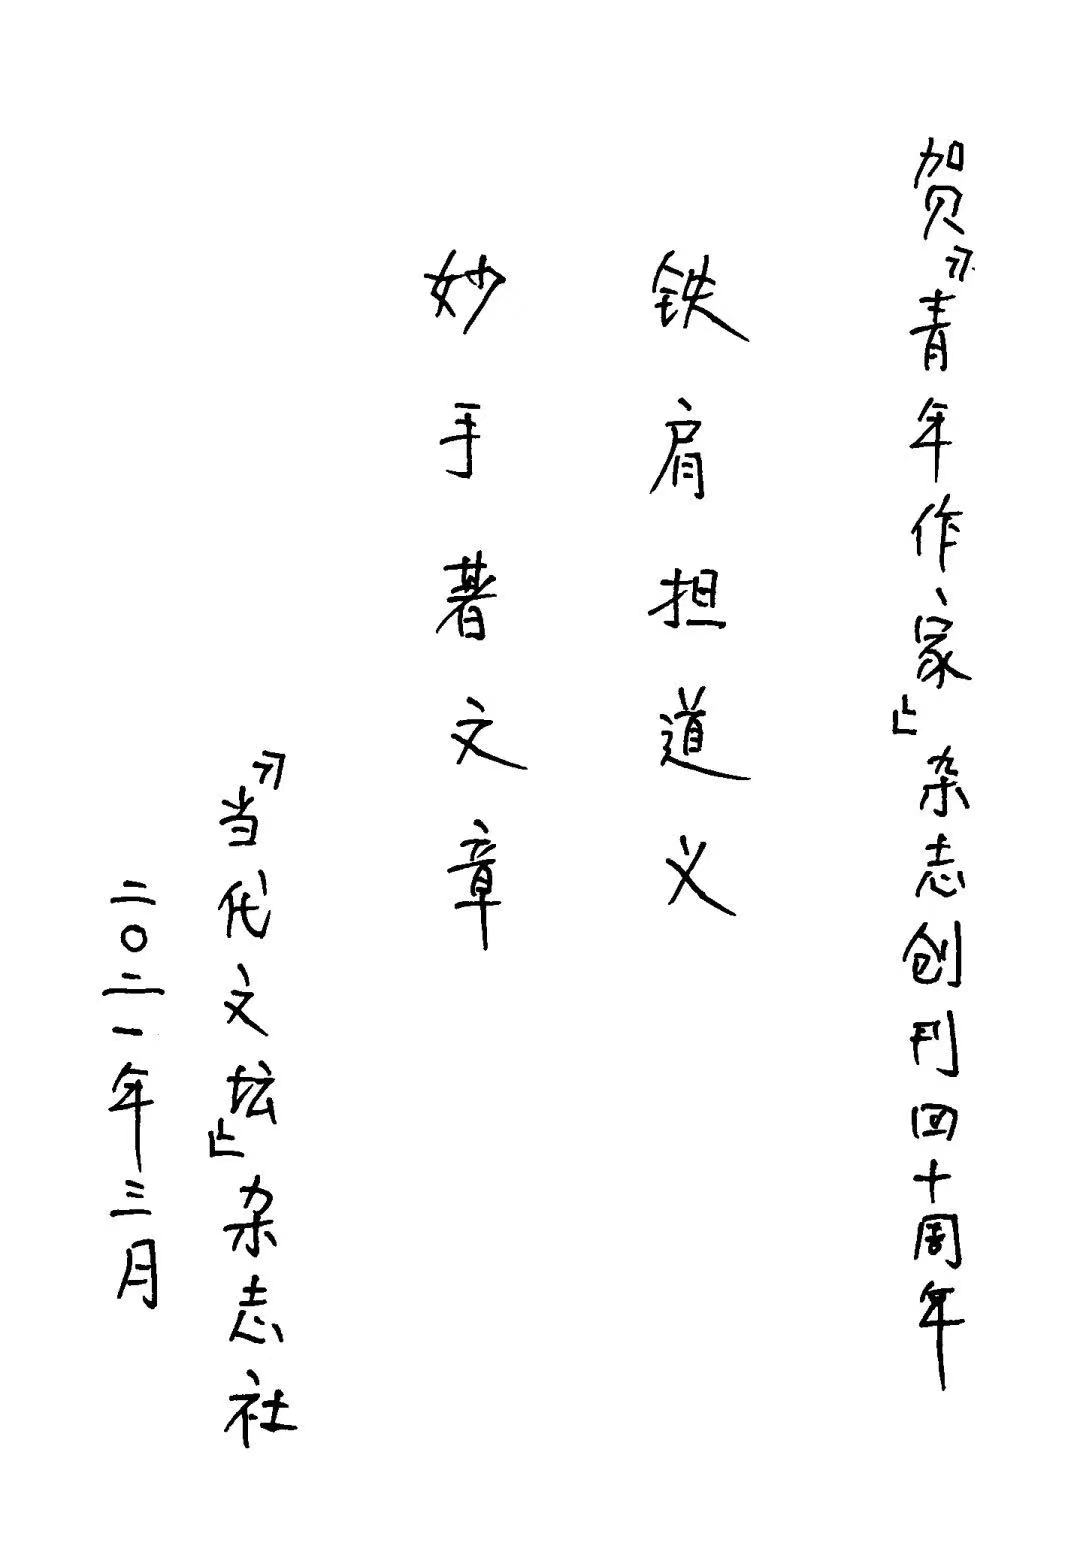 贺《青年作家》杂志创刊四十周年
铁肩担道义
妙手著文章
《当代文坛》杂志社
二〇二一年三月